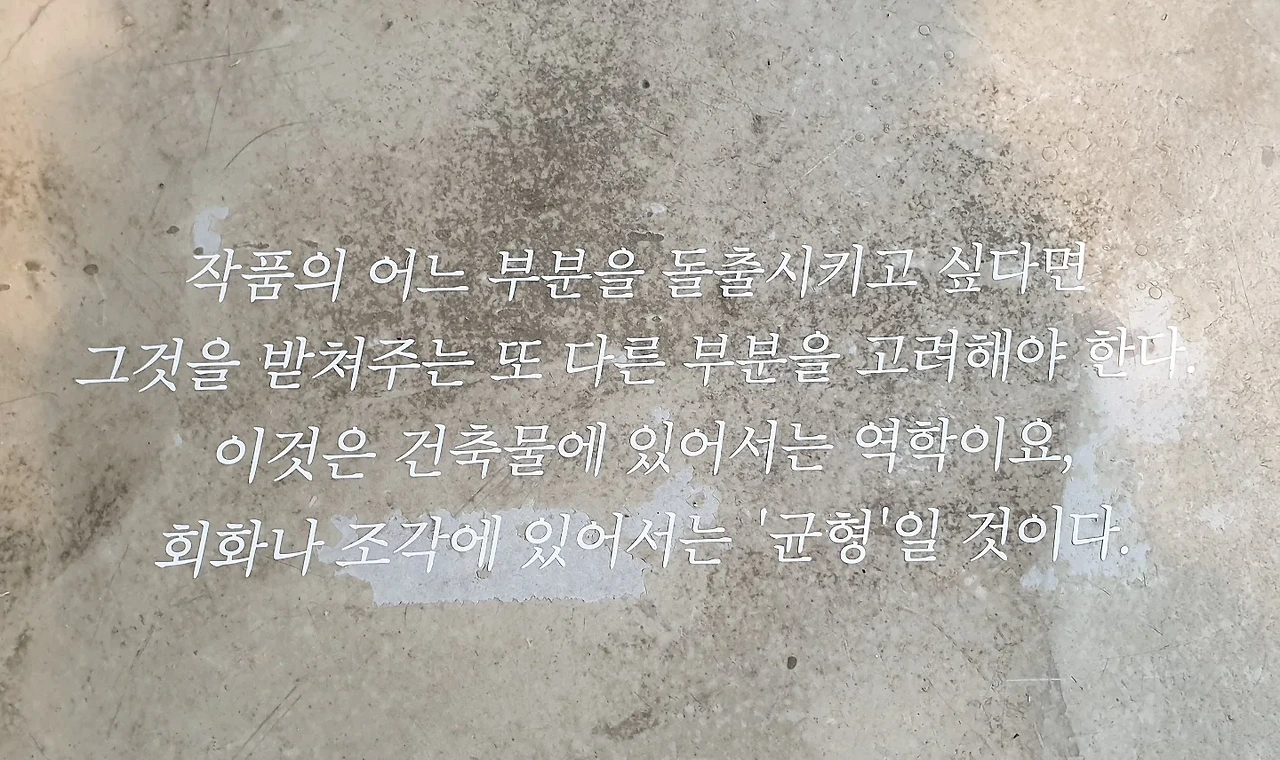 작품의 어느 부분을 돌출시키고 싶다면
그것을 받쳐주는 또 다른 부분을 고려해야 한다.
이것은 건축물에 있어서는 역학이요,
회화나 조각에 있어서는 '균형'일 것이다.